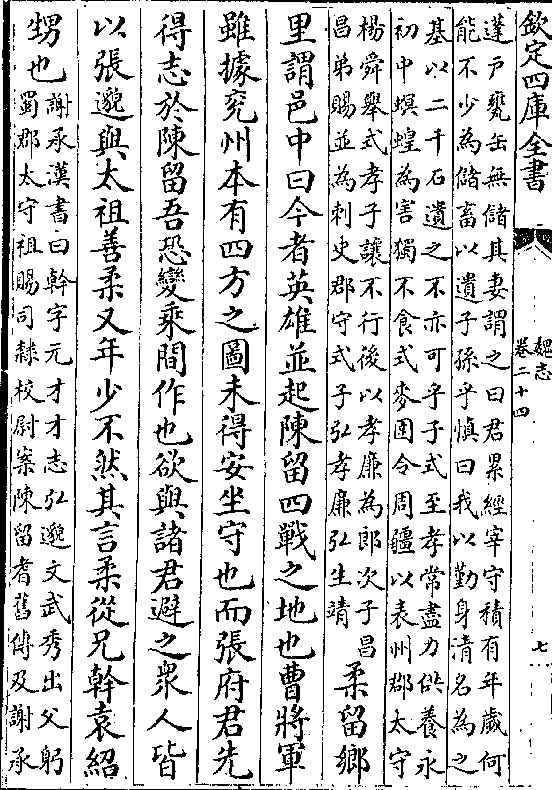 欽定四庫全書
魏志
卷二十四
七
蓬戸甕缶無儲其妻謂之曰君累經宰守積有年歲何
能不少為儲畜以遺子孫乎慎曰我以勤身清名為之
基以二千石遺之不亦可乎子式至孝常盡力供養永
初中螟蝗為害獨不食式麥圉令周疆以表州郡太守
楊舜舉式孝子讓不行後以孝廉為郎次子昌
昌弟賜並為刺史郡守式子弘孝廉弘生靖
柔留鄉
里謂邑中曰今者英雄並起陳留四戰之地也曹將軍
雖據兖州本有四方之圖未得安坐守也而張府君先
得志於陳留吾恐變乘間作也欲與諸君避之衆人皆
以張邈與太祖善柔又年少不然其言柔從兄幹袁紹
甥也
謝承漢書曰幹字元才才志弘邈文武秀出父躬
蜀郡太守祖賜司隸校尉案陳留耆舊傳及謝承